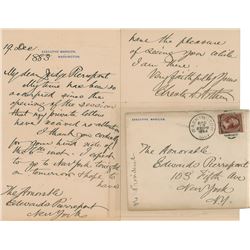 EXECUTIVE MANSION,
WASHINGTON.
19 Dec
1883
My dear Judge Pierrepont
My time has been so
occupied since the
opening of the session
that my private letters
have received no attention
I thank you cordially
for your kind note of
the inst. I expect
to go to New York tonight
or tomorrow I hope to
have
The Honorable
Edwards Pierrepont
New York
have the pleasure
of seeing you while
I am there
Very faithfully Yours
Chester A. Arthur
EXECUTIVE MANSION.
The Honorable
Edwards Pierrepont
103 Fifth Ave
New York
N.Y.